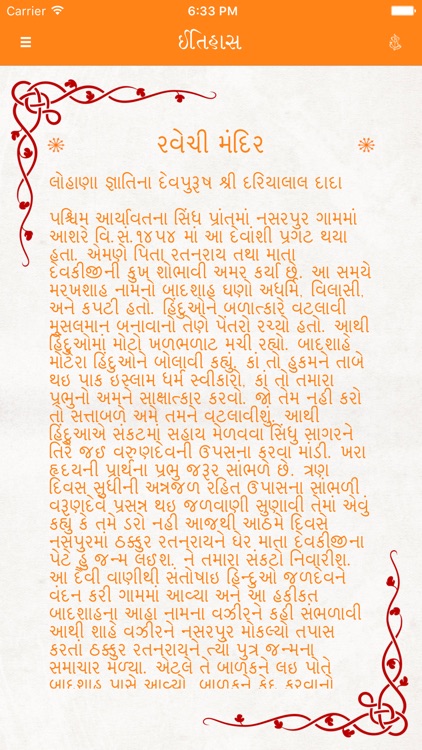 Carrier 6:33 PM
ઈતિહાસ
રવેચી મંદિર
લોહાણા જ્ઞાતિના દેવપુરૂષ શ્રી દરિયાલાલ દાદા
પશ્ચિમ આર્યાવતના સિંધ પ્રાંતમાં નસરપુર ગામમાં
આશરે વિ.સં.૧૪૫૪ માં આ દેવાંશી પ્રગટ થયા
હતા. એમણે પિતા રતનરાય તથા માતા
દેવકીજીની કુખ શોભાવી અમર કર્યા છે. આ સમયે
મરખશાહ નામનો બાદશાહ ઘણો અધર્મિ, વિલાસી,
અને કપટી હતો. હિંદુઓને બળાત્કારે વટલાવી
મુસલમાન બનાવાનો તેણે પેંતરો રચ્યો હતો. આથી
હિંદુઓમાં મોટો ખળભળાટ મચી રહ્યો. બાદશાહે
મોટેરા હિંદુઓને બોલાવી કહ્યું, કાં તો હુકમને તાબે
થઇ પાક ઇસ્લામ ધર્મ સ્વીકારો. કાં તો તમારા
પ્રભુનો અમને સાક્ષાત્કાર કરવો. જો તેમ નહી કરો
તો સત્તાબળે અમે તમને વટલાવીશું. આથી
હિંદુઆએ સંકટમાં સહાય મેળવવા સિંધુ સાગરને
તિરે જઈ વરુણદેવની ઉપસના કરવા માંડી. ખરા
હૃદયની પ્રાર્થના પ્રભુ જરૂર સાંભળે છે. ત્રણ
દિવસ સુધીની અન્નજળ રહિત ઉપાસના સાંભળી
વરૂણદેવે પ્રસન્ન થઇ જળવાણી સુણાવી તેમાં એવું
કહ્યું કે તમે ડરો નહી આજથી આઠમે દિવસે
નસરપુરમાં ઠક્કુર રતનરાયને ઘેર માતા દેવકીજીના
પેટે હું જન્મ લઈશ. ને તમારા સંકટો નિવારીશ.
આ દૈવી વાણીથી સંતોષાઇ હિન્દુઓ જળદેવને
વંદન કરી ગામમાં આવ્યા અને આ હકીકત
બાદશાહના આહા નામના વઝીરને કહી સંભળાવી
આથી શાહે વઝીરને નસરપુર મોકલ્યો તપાસ
કરતાં ઠક્કુર રતનરાયને ત્યાં પુત્ર જન્મના
સમાચાર મળ્યા. એટલે તે બાળકને લઇ પોતે
બાદશાહ પાસે આવ્યો. બાળકને કેદ કરવાનો